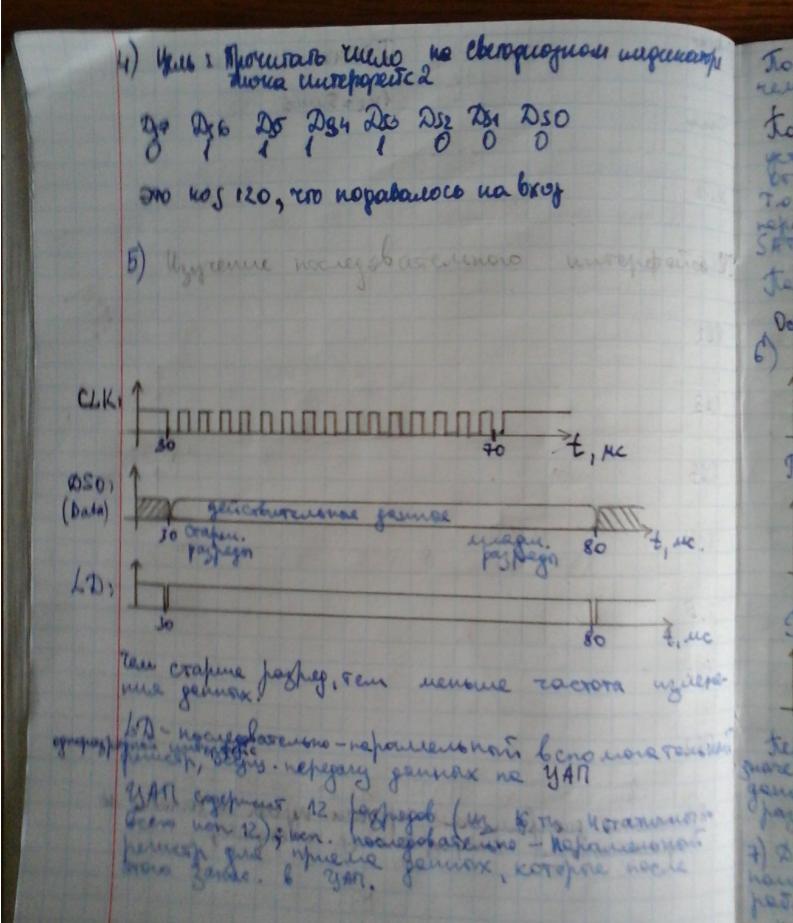 4) Цель: Прочитать число на светодиодном индикаторе
блока интерфейс 2
D7 DS6 DS5 DS4 DS3 DS2 DS1 DS0
0 1 1 1 1 0 0 0
это код 120, что подавалось на вход
5) Изучение последовательного интерфейса
CLK:
30 70 t, мс
DSO:
(Data)
действительные данные
30 старш. младш. 80 t, мс.
разряды разряды
LD:
30 80 t, мс
Чем старше разряд, тем меньше частота измене-
ния данных.
LD - последовательно-параллельный вспомогательный
регистр, передачу данных на ЦАП
ЦАП содержит 12 разрядов (из 16
всего исп. 12); исп. последовательно-параллельный
регистр для приема данных, которые после
этого в ЦАП.
6)
7)